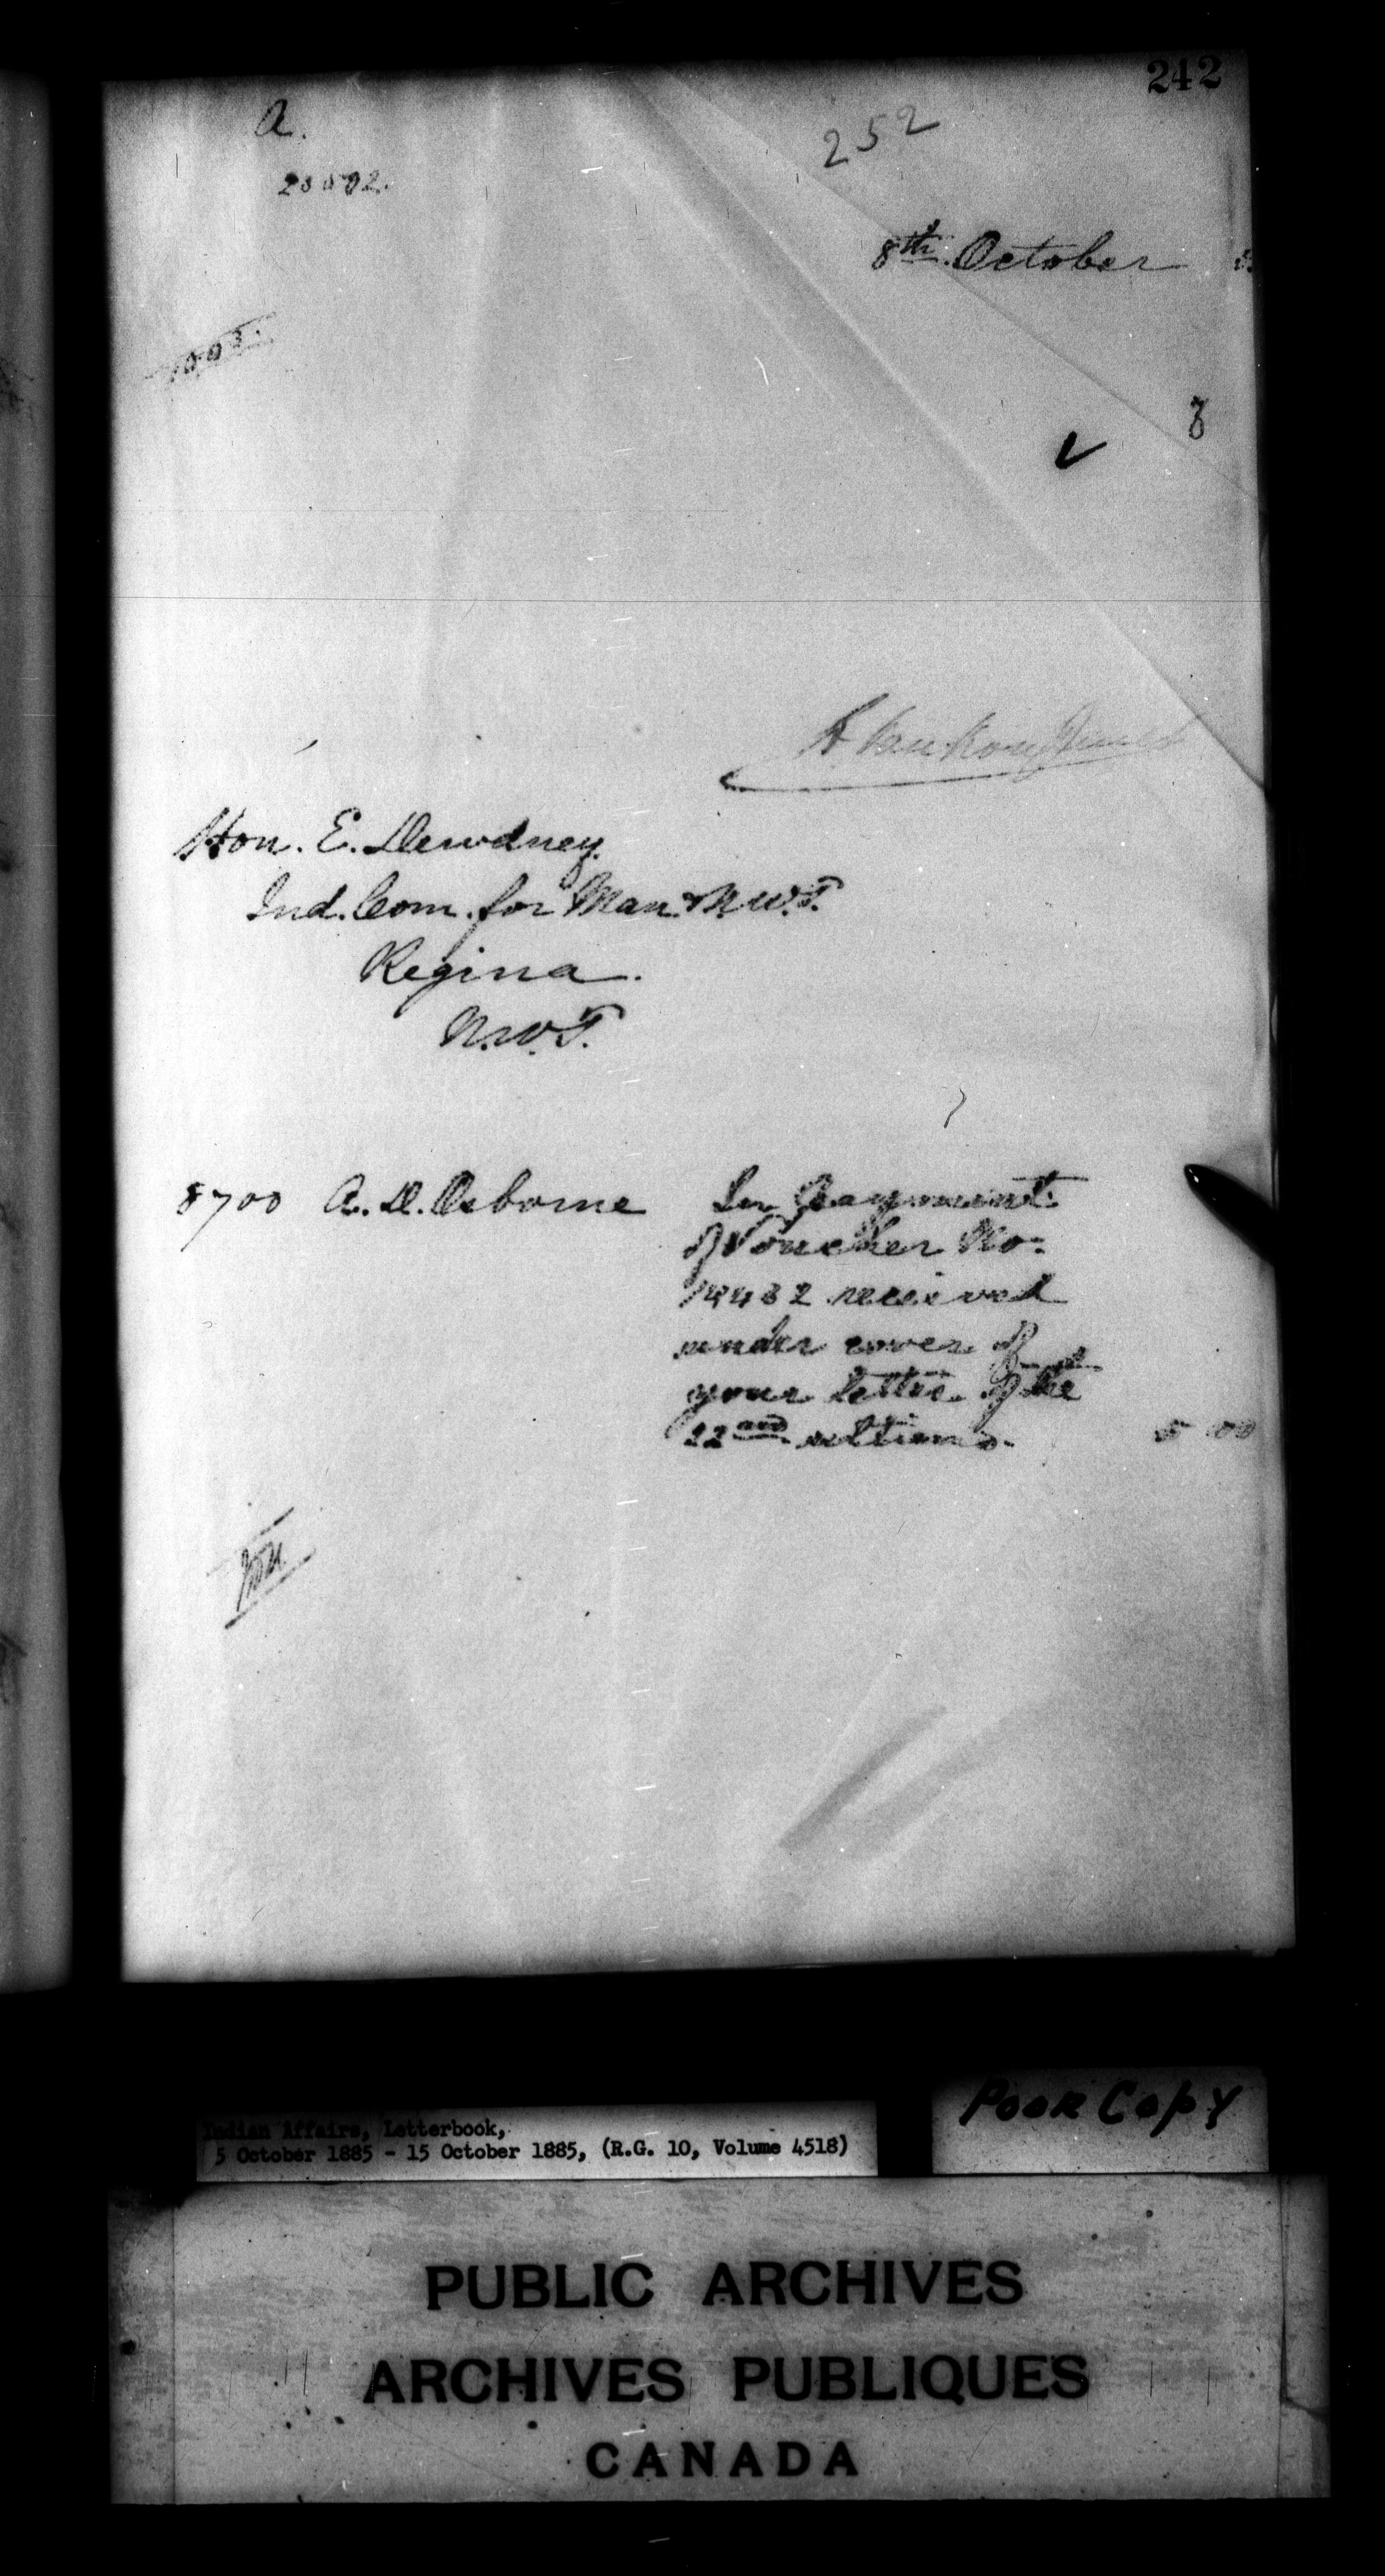 242
a.
252
8th October
8
A. VanKoughnet
Hon. E. Dewdney
Ind. Com. for Man. & N.W.T.
Regina.
N.W.T.
8700 A. D. Osborne In Payment
of Voucher No.
received
under cover of
your letter of the
22nd ultimo. 5 00
Indian Affairs, Letterbook,
5 October 1885 - 15 October 1885, (R.G. 10, Volume 4518)
Poor Copy
PUBLIC ARCHIVES
ARCHIVES PUBLIQUES
CANADA